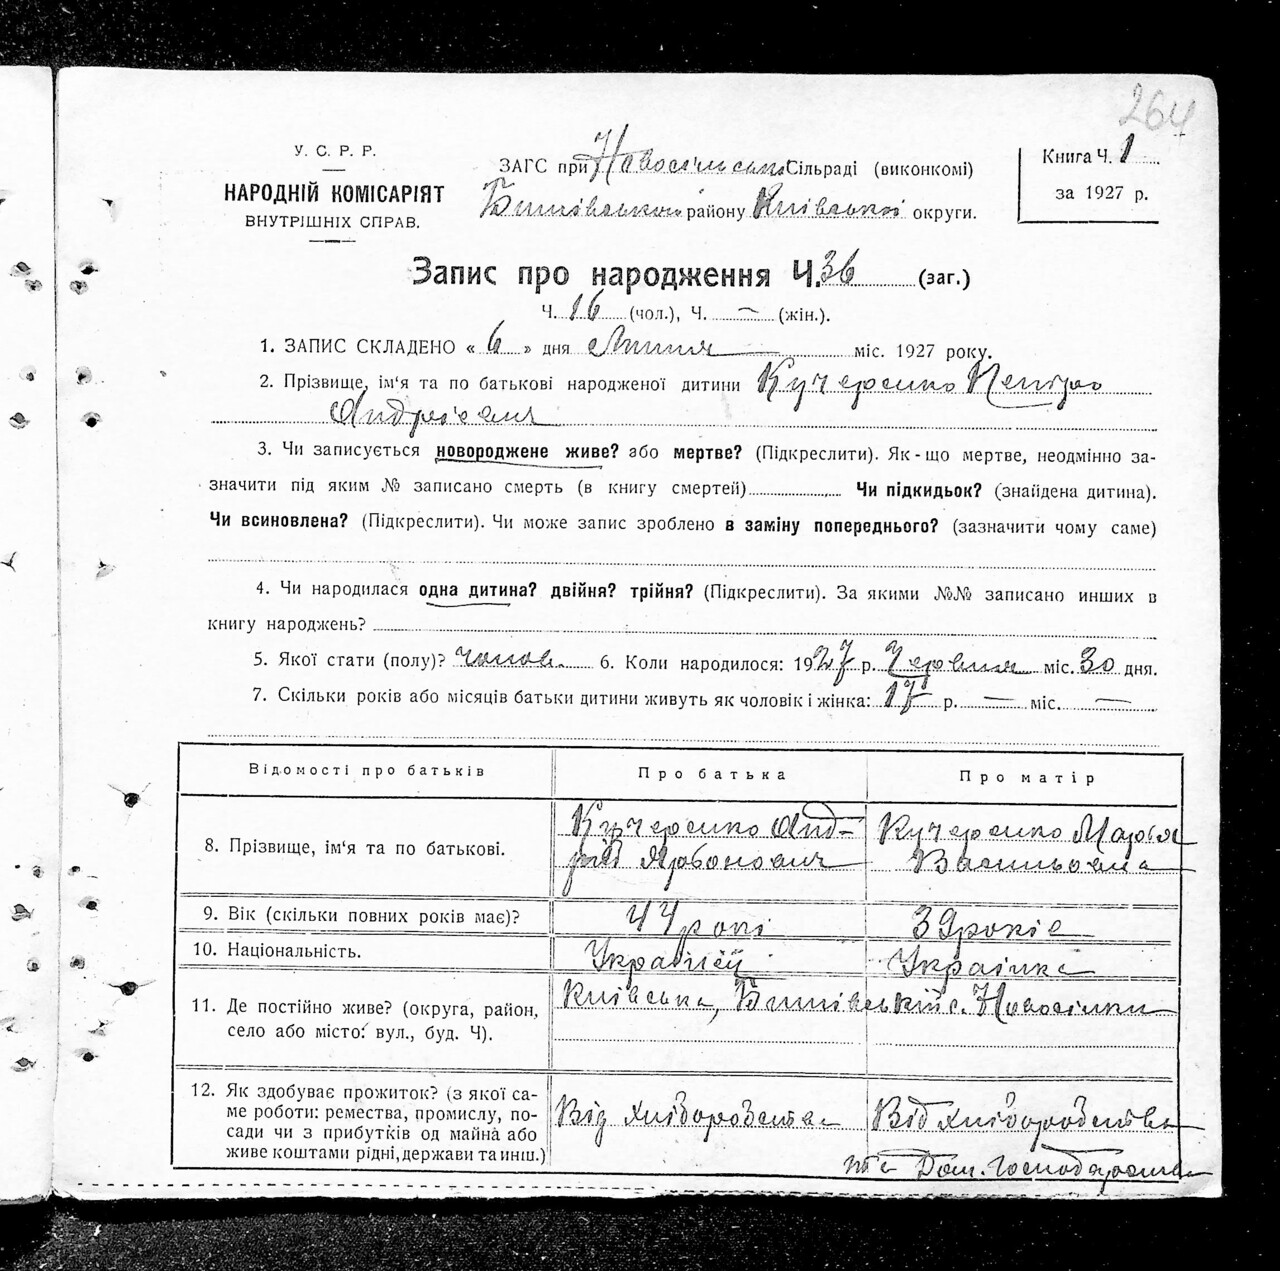 264
У. С. Р. Р.
НАРОДНІЙ КОМІСАРІЯТ
ВНУТРІШНІХ СПРАВ.
ЗАГС при Новосільській Сільраді (виконкомі)
Бишівського району Київської округи.
Книга Ч. 1
за 1927 р.
Запис про народження Ч. 36 (заг.)
Ч. 16 (чол.), Ч. — (жін.).
1. ЗАПИС СКЛАДЕНО « 6 » дня Липня міс. 1927 року.
2. Прізвище, ім'я та по батькові народженої дитини Кучеренко Петро
Андрієвич
3. Чи записується новороджене живе? або мертве? (Підкреслити). Як-що мертве, неодмінно за-
значити під яким № записано смерть (в книгу смертей) Чи підкидьок? (знайдена дитина).
Чи всиновлена? (Підкреслити). Чи може запис зроблено в заміну попереднього? (зазначити чому саме)
4. Чи народилася одна дитина? двійня? трійня? (Підкреслити). За якими №№ записано инших в
книгу народжень?
5. Якої стати (полу)? чолов. 6. Коли народилося: 1927 р. Червня міс. 30 дня.
7. Скільки років або місяців батьки дитини живуть як чоловік і жінка: 17 р. — міс. —
Відомості про батьків Про батька Про матір
8. Прізвище, ім'я та по батькові. Кучеренко Анд- Кучеренко Марія
рій Васильовна
9. Вік (скільки повних років має)? 44 рокі 39 років
10. Національність. Українець Українка
11. Де постійно живе? (округа, район,
село або місто: вул., буд. Ч). Київська, Бишівський с. Новосілки
12. Як здобуває прожиток? (з якої са-
ме роботи: ремества, промислу, по-
сади чи з прибутків од майна або
живе коштами рідні, держави та инш.) Від хліборобства Від хліборобства
та Дом. Господарства